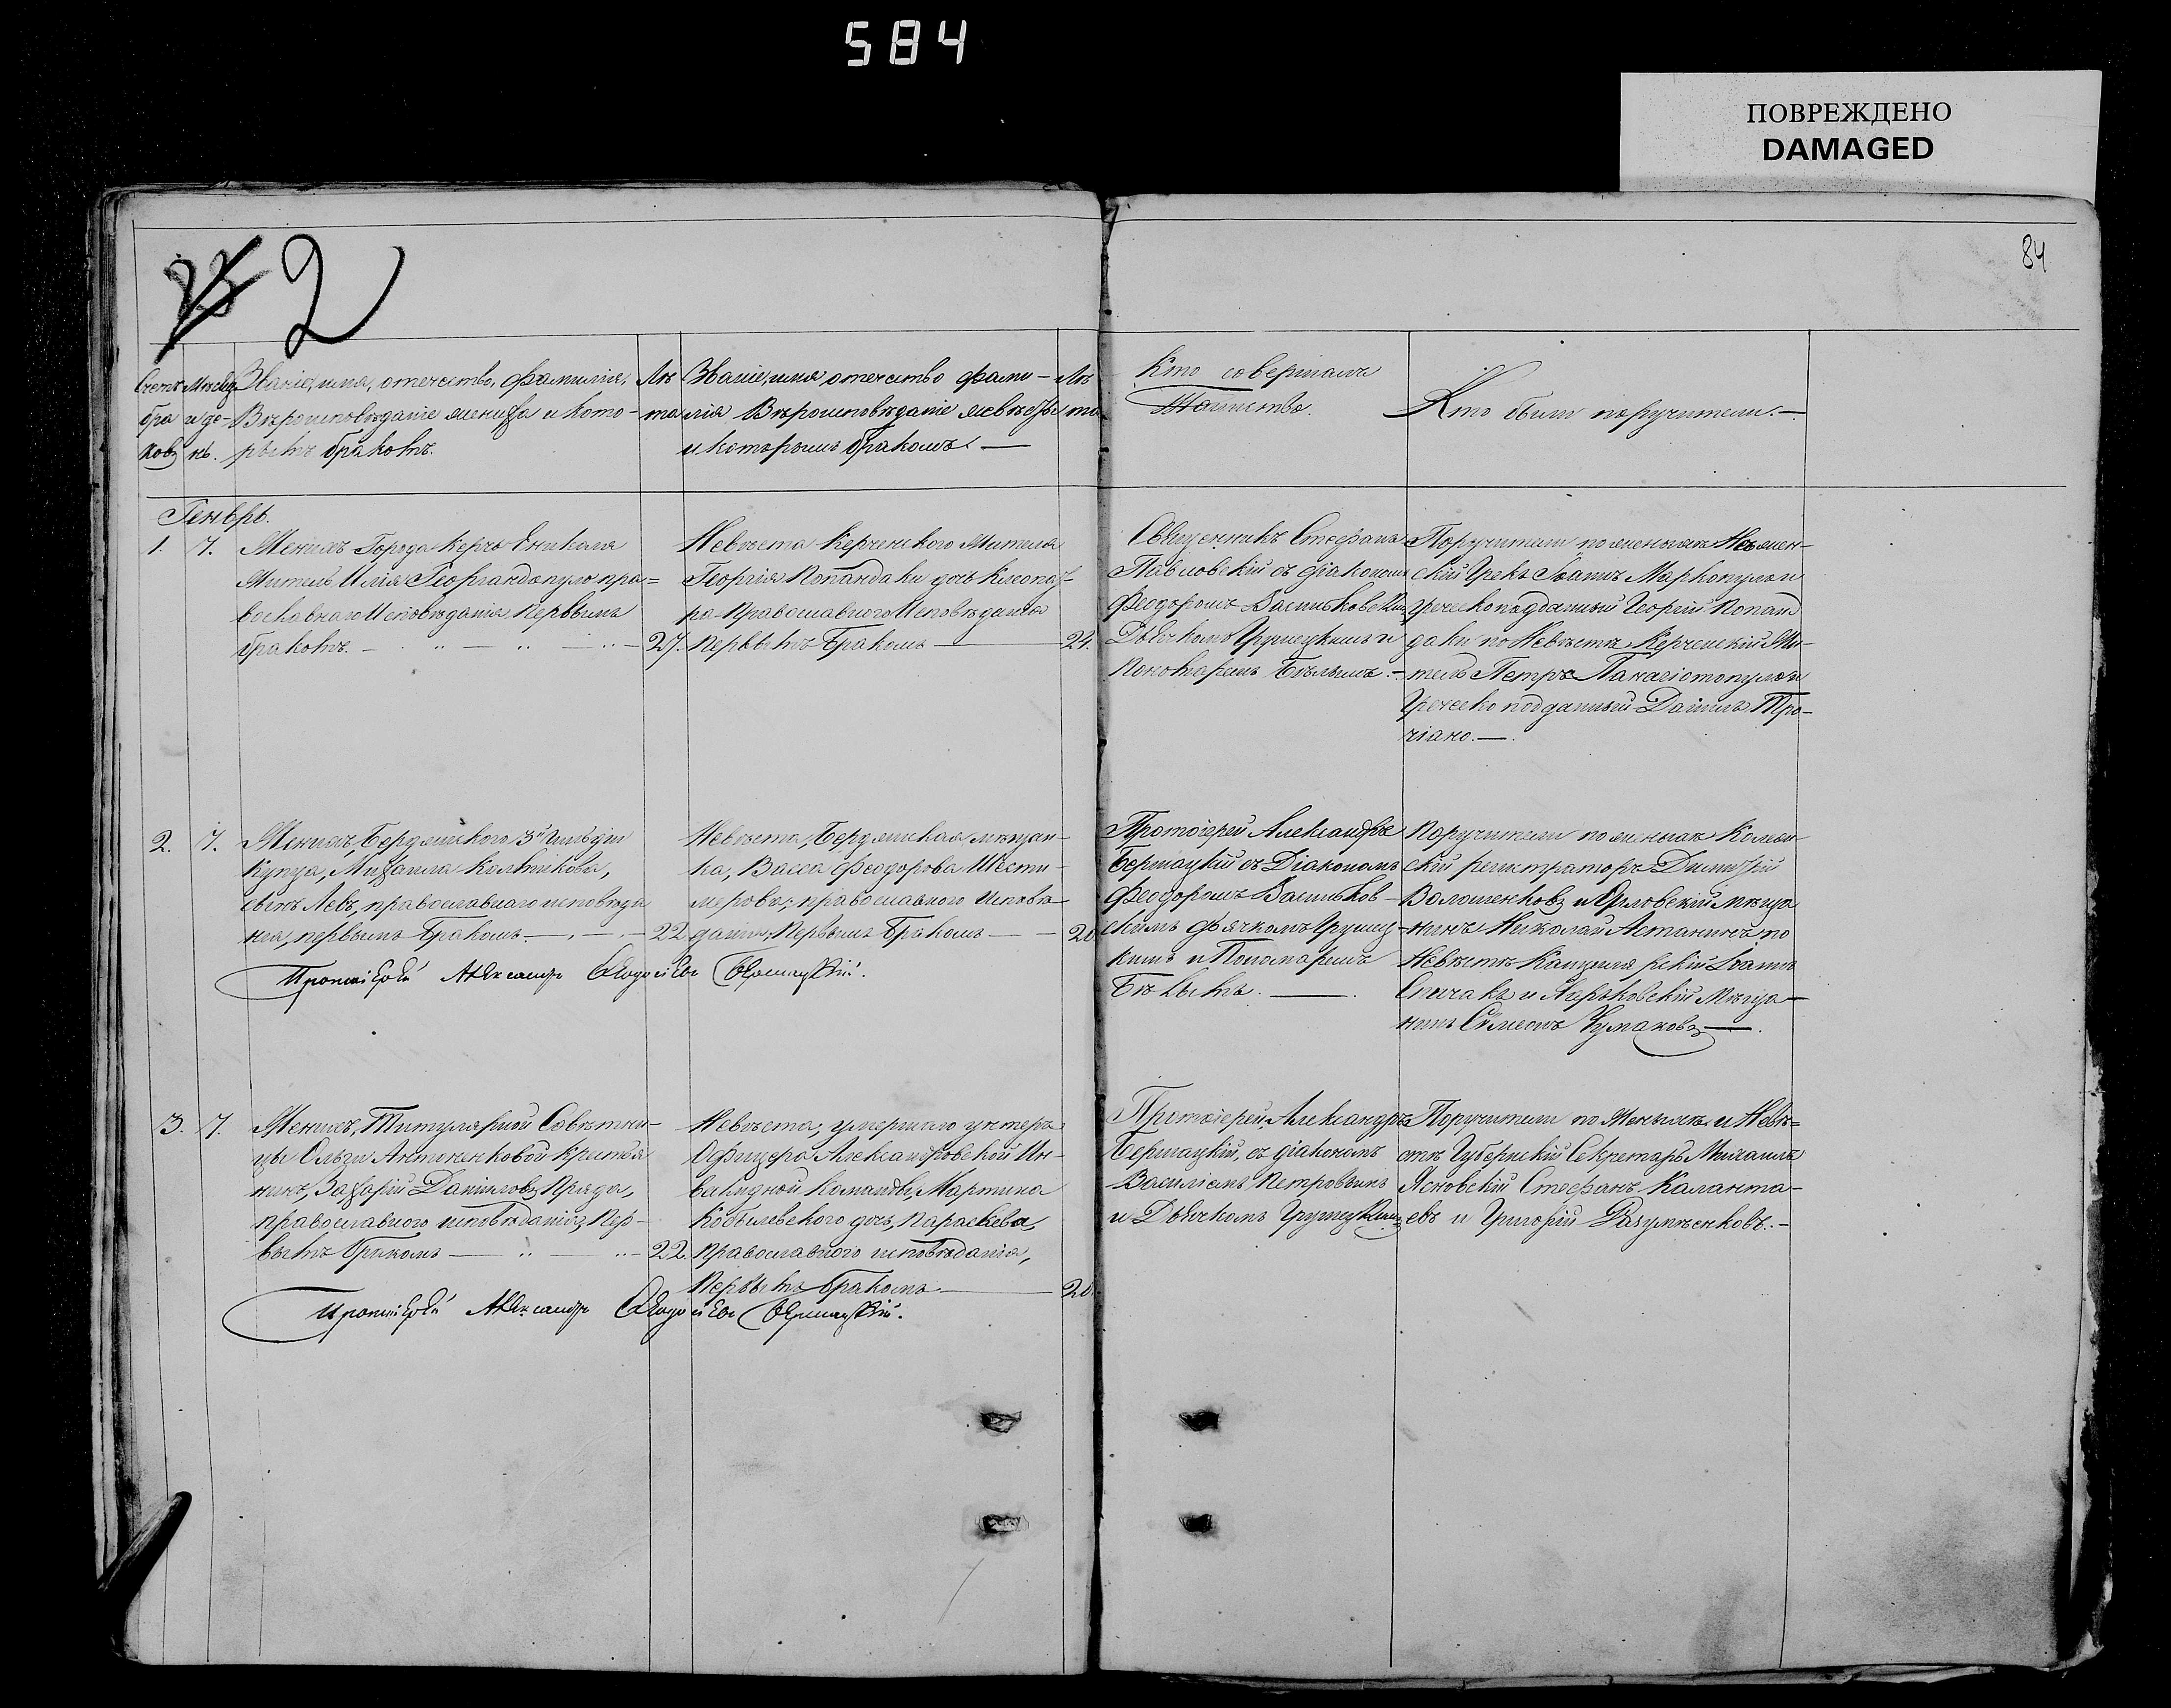 584
ПОВРЕЖДЕНО
DAMAGED
2
84
Счетъ бра ковъ
Мѣсяц и де- нь.
Званіе, имя, отечество, фамилія,
Вѣроисповѣданіе жениха и кото-
рымъ бракомъ.
Лѣ
та
Званіе, имя отечество фами-
лія Вѣроисповѣданіе невѣсты
и которымъ бракомъ. —
Лѣ
та
Кто совершалъ
Таинство.
Кто были поручители. —
Генварь.
1. 7.
Женихъ Города Керчь Еникаля
Житель Илія Георгандопуло пра=
вославнаго Исповѣданія первымъ
бракомъ. — 27.
Невѣста Керченского Жителя
Георгія Попандаки дочь Клеопат-
ра Православного Исповѣданія
первымъ Бракомъ — 24.
Священникъ Стефанъ
Павловскій съ діакономъ
Феодоромъ Васильковскимъ
Дьячкомъ Грушецкимъ и
Пономаремъ Бѣлымъ. —
Поручители по женихѣ
скій Грекъ Іоаннъ Маркопуло и
Греческоподданный Георгій Попан
даки по Невѣстѣ Керченскій Жи-
тель Петръ Панагіотопуло и
Греческо подданный Даніилъ Тро-
чіано. —.
2. 7.
Женихъ, Бердянского 3й Гильдіи
Купца, Михаила Колтикова,
сынъ Левъ, православнаго исповѣда
нія, первымъ Бракомъ. — 22
Невѣста, Бердянская мѣщан-
ка, Васса Феодорова Шести-
мерова, православного Исповѣ-
данія, Первымъ Бракомъ — 20.
Протоіерей Александръ
Бершацкій съ Діакономъ
Феодоромъ Васильков-
скимъ дьячкомъ Грушец-
кимъ и Пономаремъ
Бѣлымъ. —.
Поручители по женихѣ Колеж
скій регистраторъ Димитрій
Волошенковъ и Орловскій мѣща
нинъ Николай Астанинъ по
Невѣстѣ Канцеля рскій Іоаннъ
Спичакъ и Харьковскій Мѣща-
нинъ Симеонъ Чумаковъ —.
Протоіерей Александръ Бершацкій.
3. 7.
Женихъ, Титулярной Совѣтни-
цы Ольги Антоненковой крестья
нинъ, Захарій Даніиловъ Пряда,
православного исповѣданія, Пер-
вымъ бракомъ — 22.
Невѣста, умершаго унтеръ
Офицера Александровской Ин-
валидной Команды, Мартина
Кобылевского дочь, Параскева,
православного исповѣданія,
Первымъ бракомъ — 20.
Протоіерей, Александръ
Бершацкій, съ діакономъ
Василіемъ Петровымъ
и Дьячкомъ Грушецкимъ
Поручители по Женихѣ и Невѣ=
стѣ Губернскій Секретарь Михаилъ
Ясновскій Стефанъ Каланта-
евъ и Григорій Разумѣенковъ. —
Протоіерей Александръ Бершацкій.